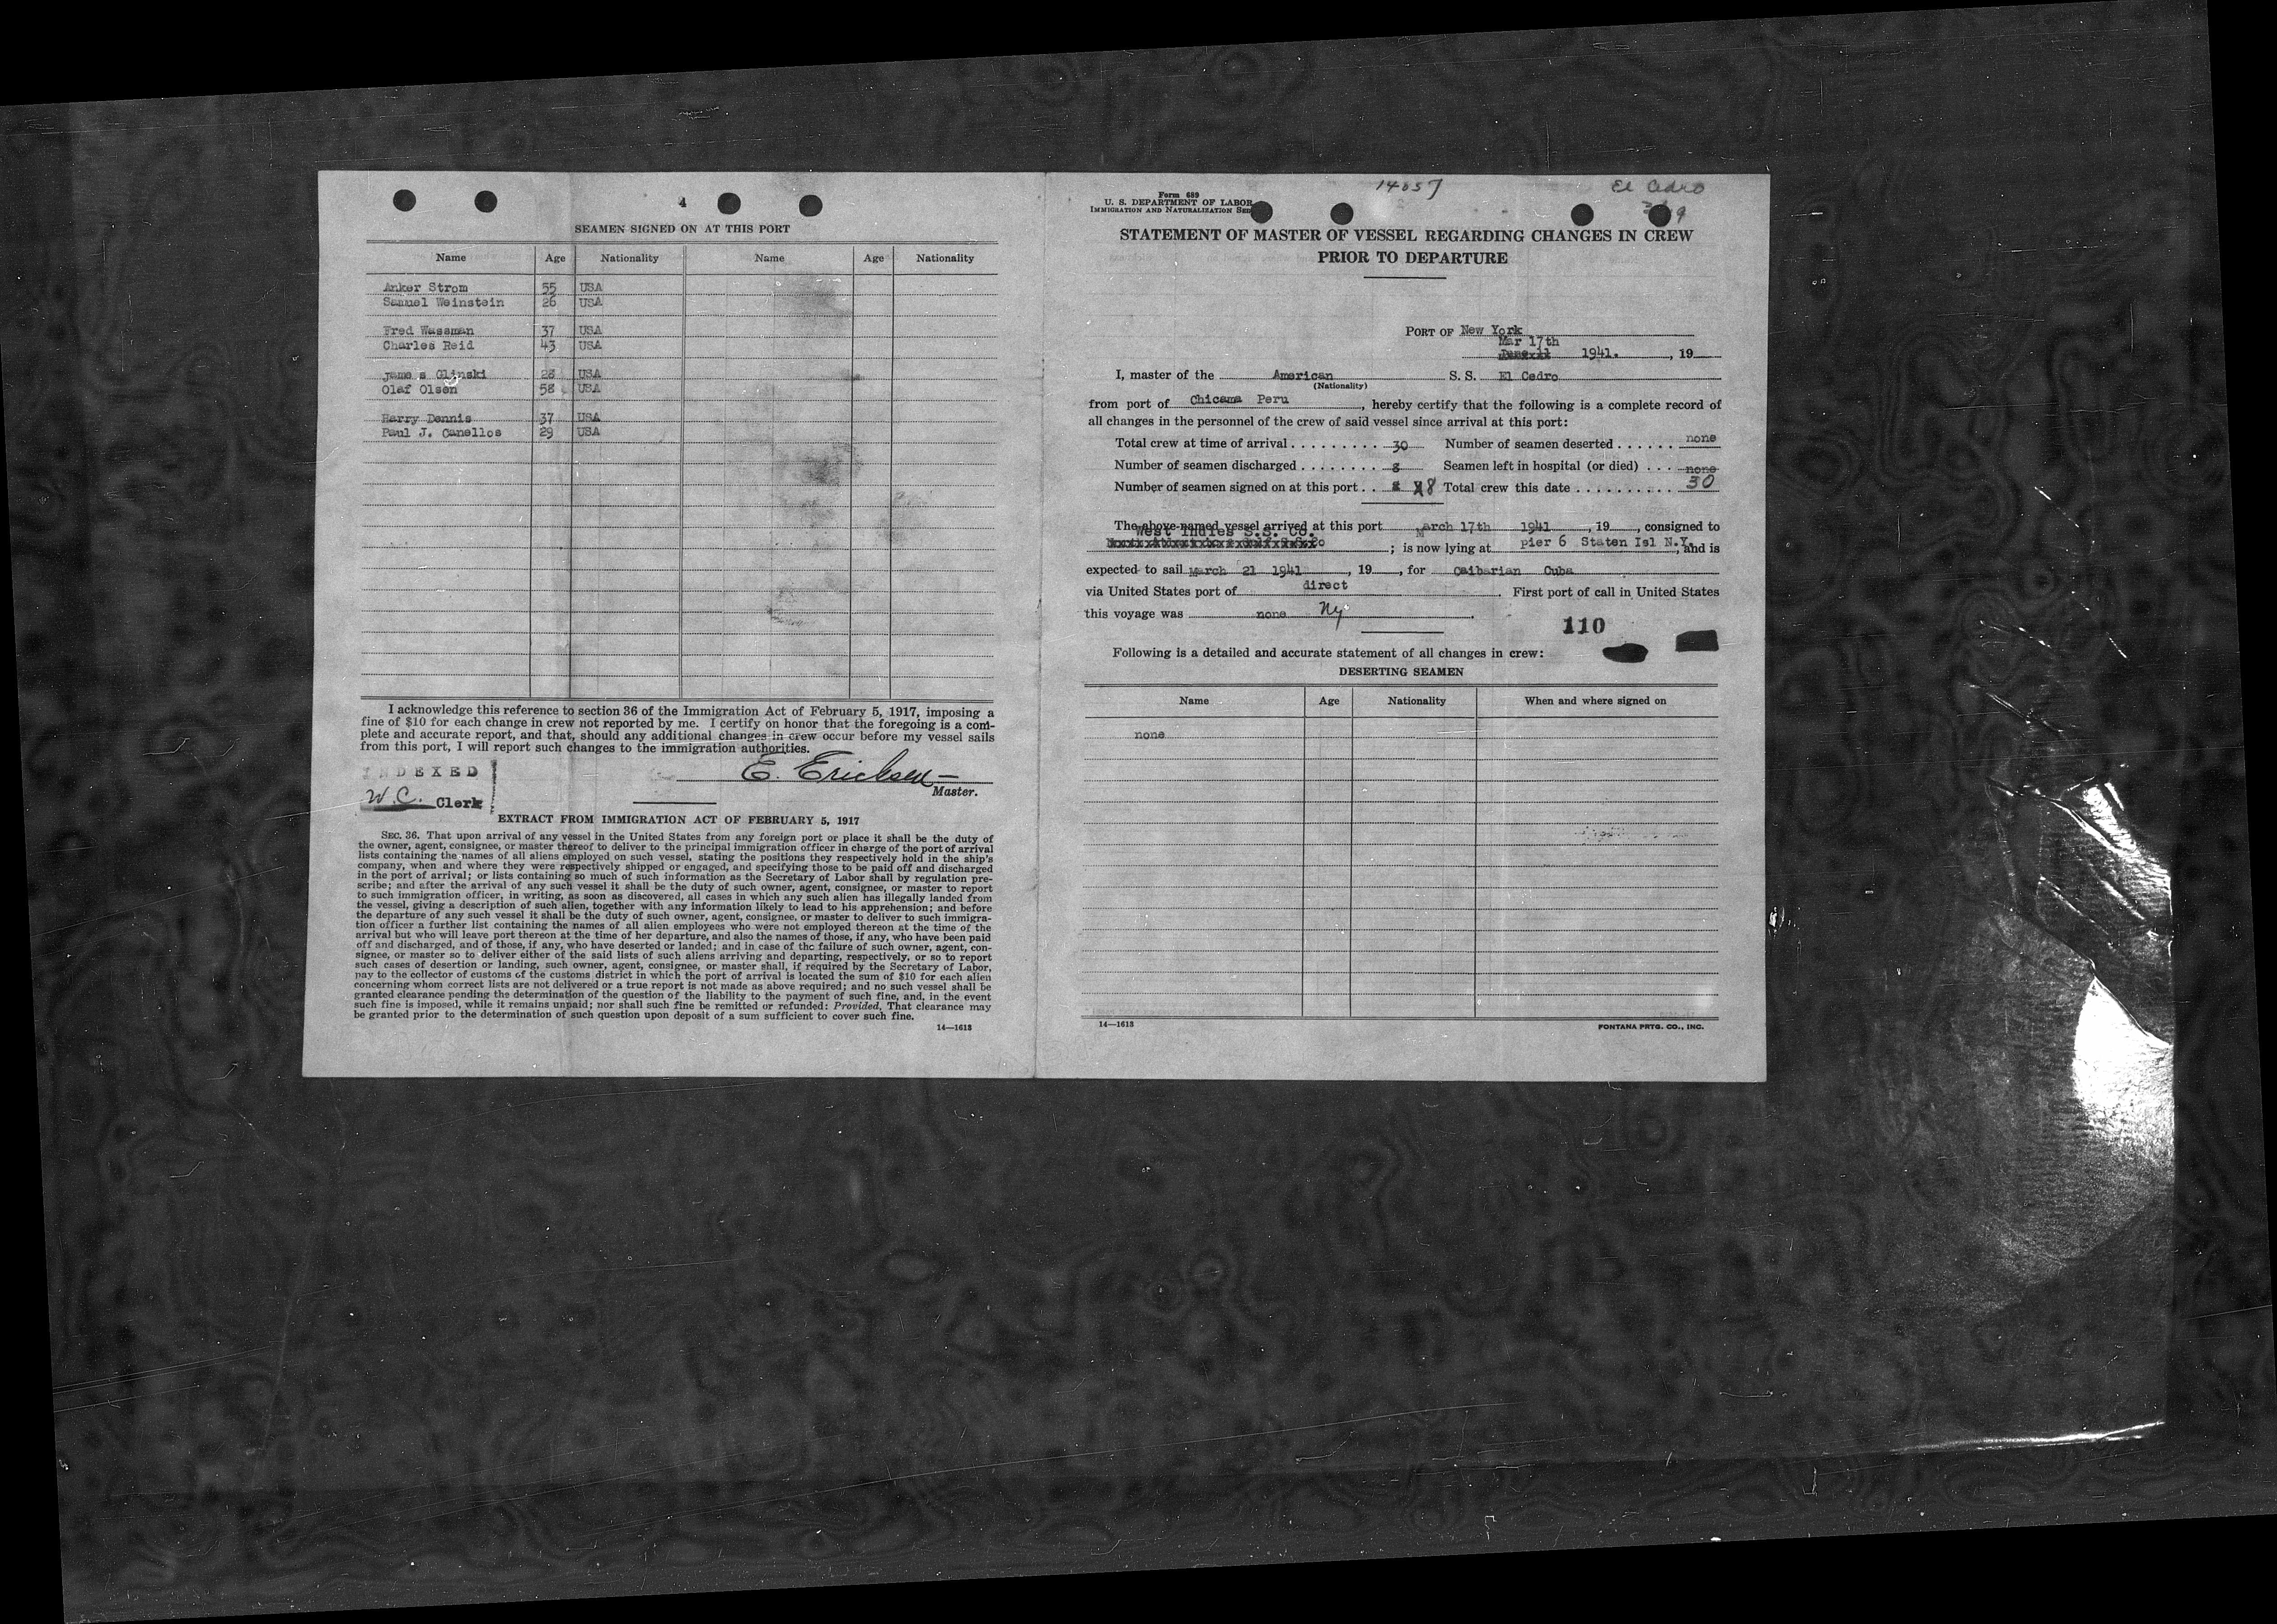 4
SEAMEN SIGNED ON AT THIS PORT
Name Age Nationality Name Age Nationality
Anker Strom 55 USA
Samuel Weinstein 26 USA
Fred Wassman 37 USA
Charles Reid 43 USA
James Glinski 28 USA
Olaf Olsen 58 USA
Harry Dennis 37 USA
Paul J. Canellos 29 USA
I acknowledge this reference to section 36 of the Immigration Act of February 5, 1917, imposing a
fine of $10 for each change in crew not reported by me. I certify on honor that the foregoing is a com-
plete and accurate report, and that, should any additional changes in crew occur before my vessel sails
from this port, I will report such changes to the immigration authorities.
INDEXED
E. Ericksen
Master.
W.C. Clerk
EXTRACT FROM IMMIGRATION ACT OF FEBRUARY 5, 1917
SEC. 36. That upon arrival of any vessel in the United States from any foreign port or place it shall be the duty of
the owner, agent, consignee, or master thereof to deliver to the principal immigration officer in charge of the port of arrival
lists containing the names of all aliens employed on such vessel, stating the positions they respectively hold in the ship's
company, when and where they were respectively shipped or engaged, and specifying those to be paid off and discharged
in the port of arrival; or lists containing so much of such information as the Secretary of Labor shall by regulation pre-
scribe; and after the arrival of any such vessel it shall be the duty of such owner, agent, consignee, or master to report
to such immigration officer, in writing, as soon as discovered, all cases in which any such alien has illegally landed from
the vessel, giving a description of such alien, together with any information likely to lead to his apprehension; and before
the departure of any such vessel it shall be the duty of such owner, agent, consignee, or master to deliver to such immigra-
tion officer a further list containing the names of all alien employees who were not employed thereon at the time of the
arrival but who will leave port thereon at the time of her departure, and also the names of those, if any, who have been paid
off and discharged, and of those, if any, who have deserted or landed; and in case of the failure of such owner, agent, con-
signee, or master so to deliver either of the said lists of such aliens arriving and departing, respectively, or so to report
such cases of desertion or landing, such owner, agent, consignee, or master shall, if required by the Secretary of Labor,
pay to the collector of customs of the customs district in which the port of arrival is located the sum of $10 for each alien
concerning whom correct lists are not delivered or a true report is not made as above required; and no such vessel shall be
granted clearance pending the determination of the question of the liability to the payment of such fine, and, in the event
such fine is imposed, while it remains unpaid; nor shall such fine be remitted or refunded: Provided, That clearance may
be granted prior to the determination of such question upon deposit of a sum sufficient to cover such fine.
14—1613
14057
El Cedro
Form 689
U. S. DEPARTMENT OF LABOR
IMMIGRATION AND NATURALIZATION
STATEMENT OF MASTER OF VESSEL REGARDING CHANGES IN CREW
PRIOR TO DEPARTURE
PORT OF New York
Mar 17th
1941. , 19
I, master of the American S. S. El Cedro
(Nationality)
from port of Chicama Peru , hereby certify that the following is a complete record of
all changes in the personnel of the crew of said vessel since arrival at this port:
Total crew at time of arrival . . . . . . . . . 30 Number of seamen deserted . . . . . . none
Number of seamen discharged . . . . . . . . 8 Seamen left in hospital (or died) . . . none
Number of seamen signed on at this port . . 8 Total crew this date . . . . . . . . . . 30
The above-named vessel arrived at this port March 17th 1941 , 19 , consigned to
West Indies S.S. Co.
; is now lying at pier 6 Staten Isl N.Y. , and is
expected to sail March 21 1941 , 19 , for Caibarian Cuba
via United States port of direct . First port of call in United States
this voyage was none Ny .
110
Following is a detailed and accurate statement of all changes in crew:
DESERTING SEAMEN
Name Age Nationality When and where signed on
none
14—1613
FONTANA PRTG. CO., INC.